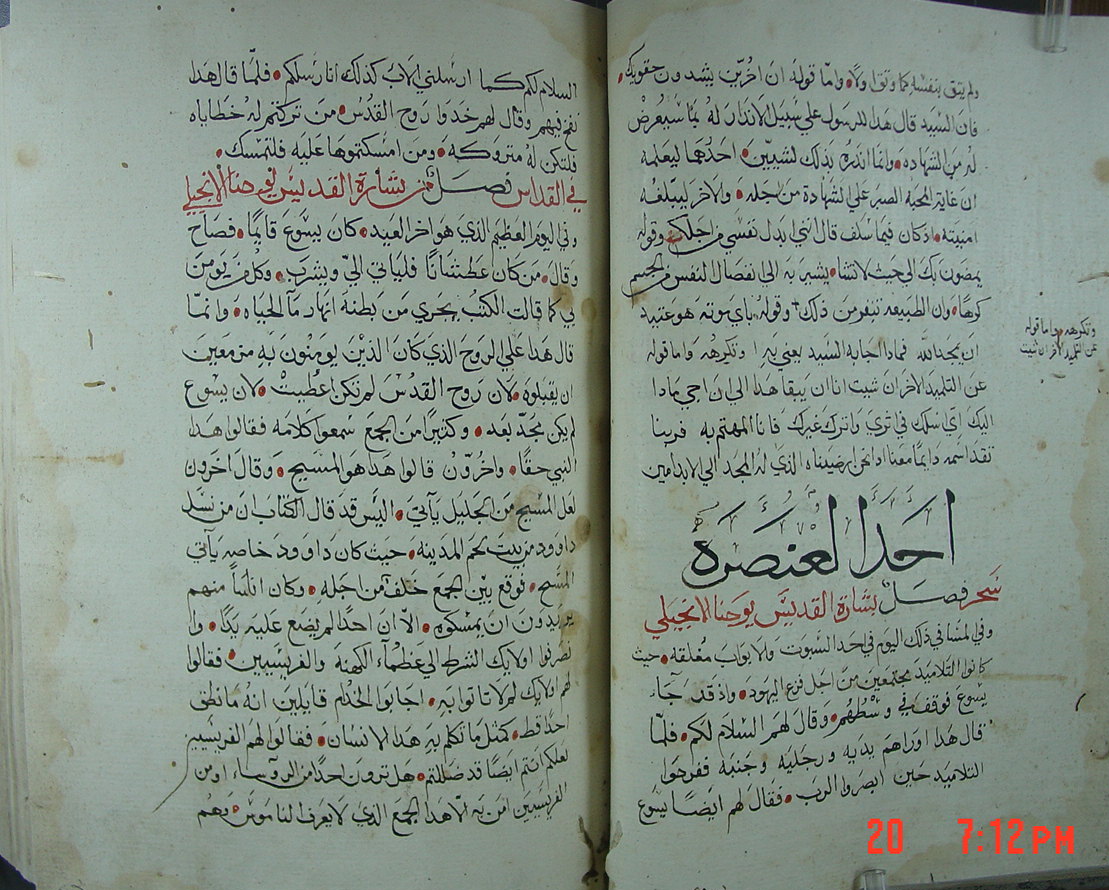 ولم يثق بنفسه كما وثق اولا، واما قوله ان اخرين يشدون حقويك.
فان السيد قال هدا للرسول علي سبيل الاندار له بما سيعرض
له من الشهاده. وانما اندره بذلك لشيين. احدهما ليعلمه
ان غاية المحبة الصبر علي الشهادة من اجله. والاخر ليبلغه
امنيته. اذ كان فيما سلف قال انني ابدل نفسي من اجلك. وقوله
يمضون بك الي حيث لا تشا. يشير به الي انفصال النفس من الجسم
كرها. وان الطبيعه تنفر من ذلك. وقوله باي موته هو عتيد
ان يمجد الله فماذا اجابه السيد يعني به وتكرهه واما قوله
عن التلميد الاخر ان شيت انا ان يبقا هدا الي ان اجي مادا
اليك اي اسلك في اثري واترك غيرك فانا المهتم به فربنا
تقدس اسمه دايما معنا اذا نحن ارضيناه الذي له المجد الي الابد امين
وتكرهه واما قوله
عن التلميد الاخر ان شيت
احد العنصره
سحر فصل بشارة القديس يوحنا الانجيلي
وفي المشا في ذلك اليوم في احد السبوت والابواب مغلقه. حيث
كانوا التلاميد مجتمعين من اجل فزع اليهود. واذ قد جآ
يسوع فوقف في وسطهم. وقال لهم السلام لكم. فلما
قال هدا اوراهم يديه ورجليه وجنبه ففرحوا
التلاميد حين ابصروا الرب. فقال لهم ايضا يسوع
السلام لكم كما ارسلني الاب كذلك انا رسلكم. فلما قال هدا
نفخ فيهم وقال لهم خدوا روح القدس. من تركتم له خطاياه
فلتكن له متروكه. ومن امسكتموها عليه فلتمسك.
في القداس فصل من بشارة القديس يوحنا الانجيلي
وفي اليوم العظيم الذي هو اخر العيد. كان يسوع قايما. فصاح
وقال. من كان عطشانا فلياتي الي ويشرب. وكل من يومن
بي كما قالت الكتب يجري من بطنه انهار مآ الحياه. وانما
قال هدا علي الروح الذي كان الذين يومنون به مزمعين
ان يقبلوه. لان روح القدس لم تكن اعطيت. لان يسوع
لم يكن مجد بعد. وكثيرا من الجمع سمعوا كلامه فقالوا هدا
النبي حقا. واخرون قالوا هدا هو المسيح. وقال اخرون
لعل المسيح من الجليل يآتي. اليس قد قال الكتاب ان من نسل
داوود من بيت لحم المدينه. حيث كان داوود خاصه يآتي
المسيح. فوقع بين الجمع خلف من اجله. وكان اناسا منهم
يريدون ان يمسكوه. الا ان احدا لم يضع عليه يدا. وا
نصرفوا اولايك الشرط الي عظمآء الكهنة والفريسيين. فقالوا
لهم اولايك لم لا تاتوا به. اجابوا الخدام قايلين انه ما نطق
احدا قط. كمثل ما تكلم به هدا الانسان. فقالوا لهم الفريسيين
لعلكم انتم ايضا قد ضللتم. هل ترون احدا من الروساء اومن
الفريسيين امن به الا هدا الجمع الذي لا يعرف الناموس. وهم
20 7:12 PM